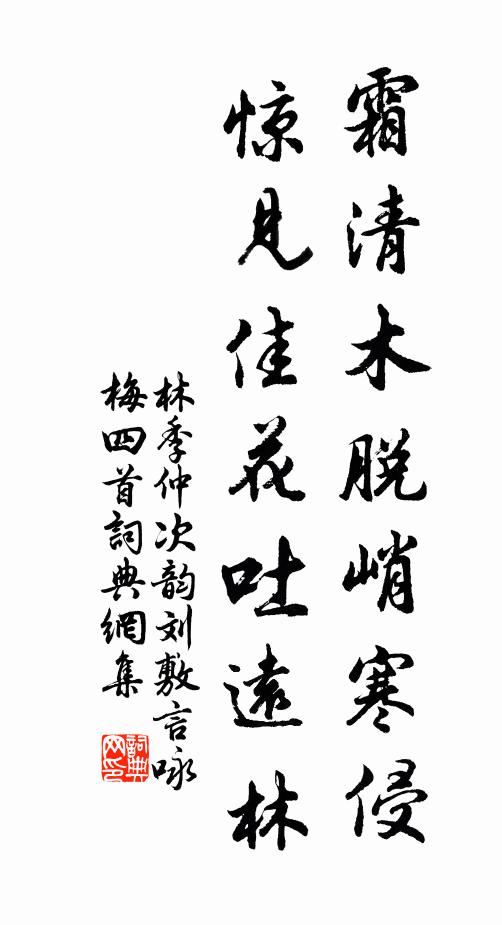 霜清木脱峭寒侵
惊見佳花吐遠林
林季仲次韵刘敷言咏
梅四首詞典網集
詞典
网印